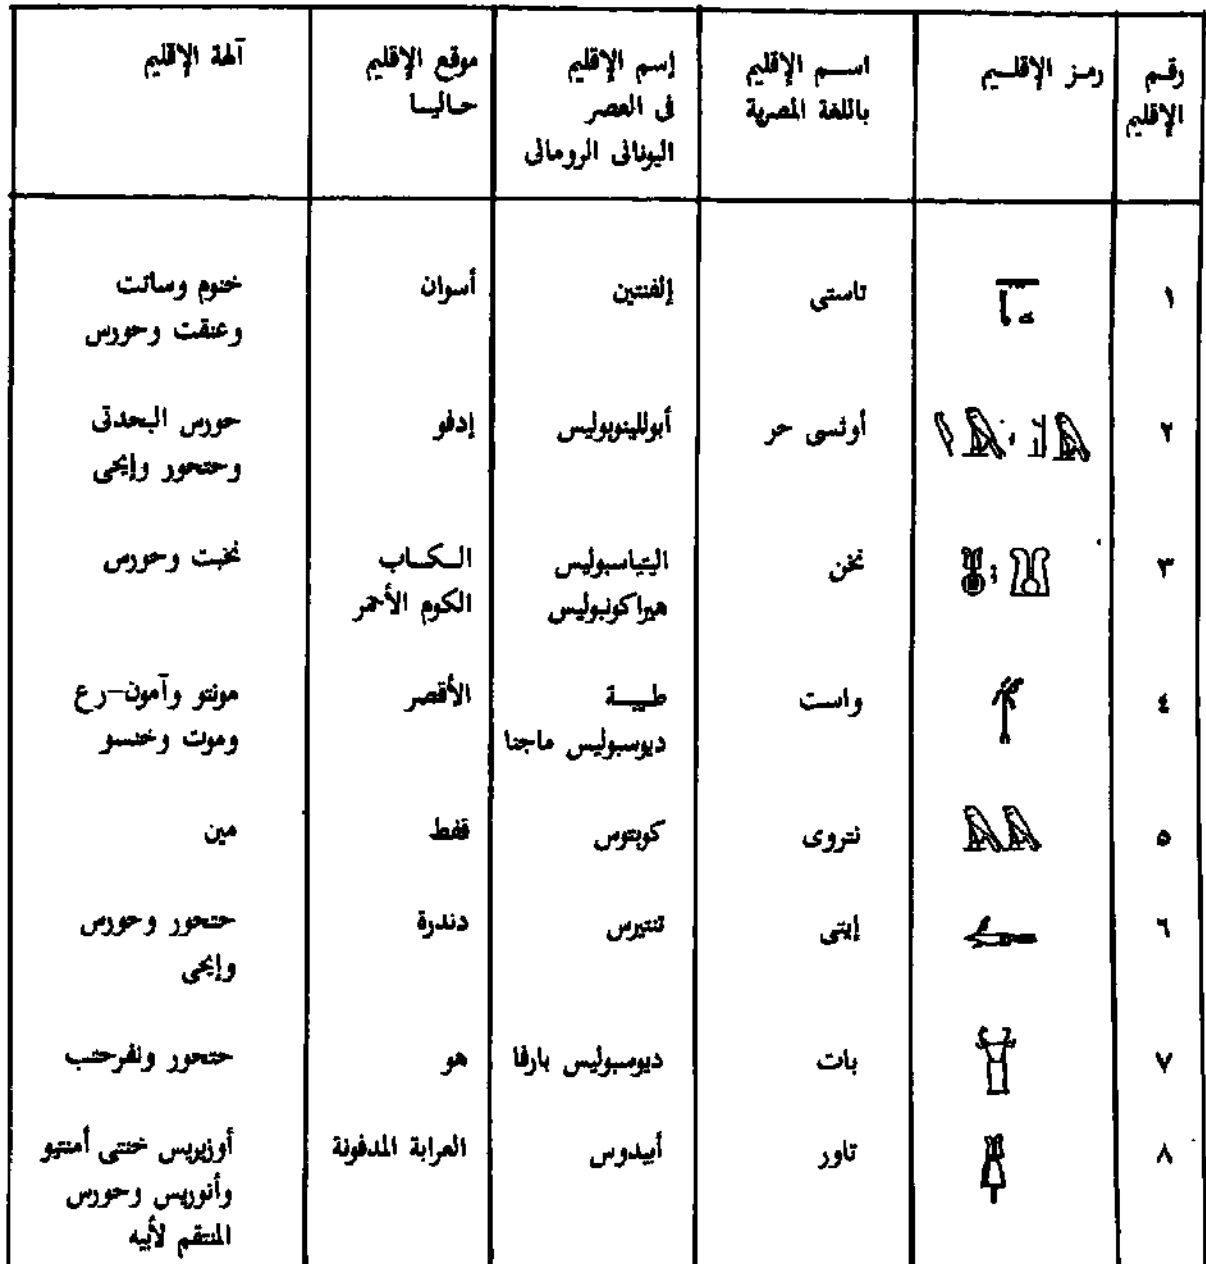 رقم الإقليم | رمز الإقليم | اسم الإقليم باللغة المصرية | إسم الإقليم فى العصر اليونانى الرومانى | موقع الإقليم حاليا | آلهة الإقليم
١ | تاستى | إلفنتين | أسوان | خنوم وساتت وعنقت وحورس
٢ | أوتسى حر | أبوللينوبوليس | إدفو | حورس البحدتى وحتحور وإيحى
٣ | نخن | اليتياسبوليس هيراكونبوليس | الكاب الكوم الأحمر | نخبت وحورس
٤ | واست | طيبة ديوسبوليس ماجنا | الأقصر | مونتو وآمون-رع وموت وخنسو
٥ | نتروى | كوبتوس | قفط | مين
٦ | إيتى | تنتيرس | دندرة | حتحور وحورس وإيحى
٧ | بات | ديوسبوليس بارفا | هو | حتحور ونفرحتب
٨ | تاور | أبيدوس | العرابة المدفونة | أوزيريس خنتى أمنتيو وأنوريس وحورس المنتقم لأبيه